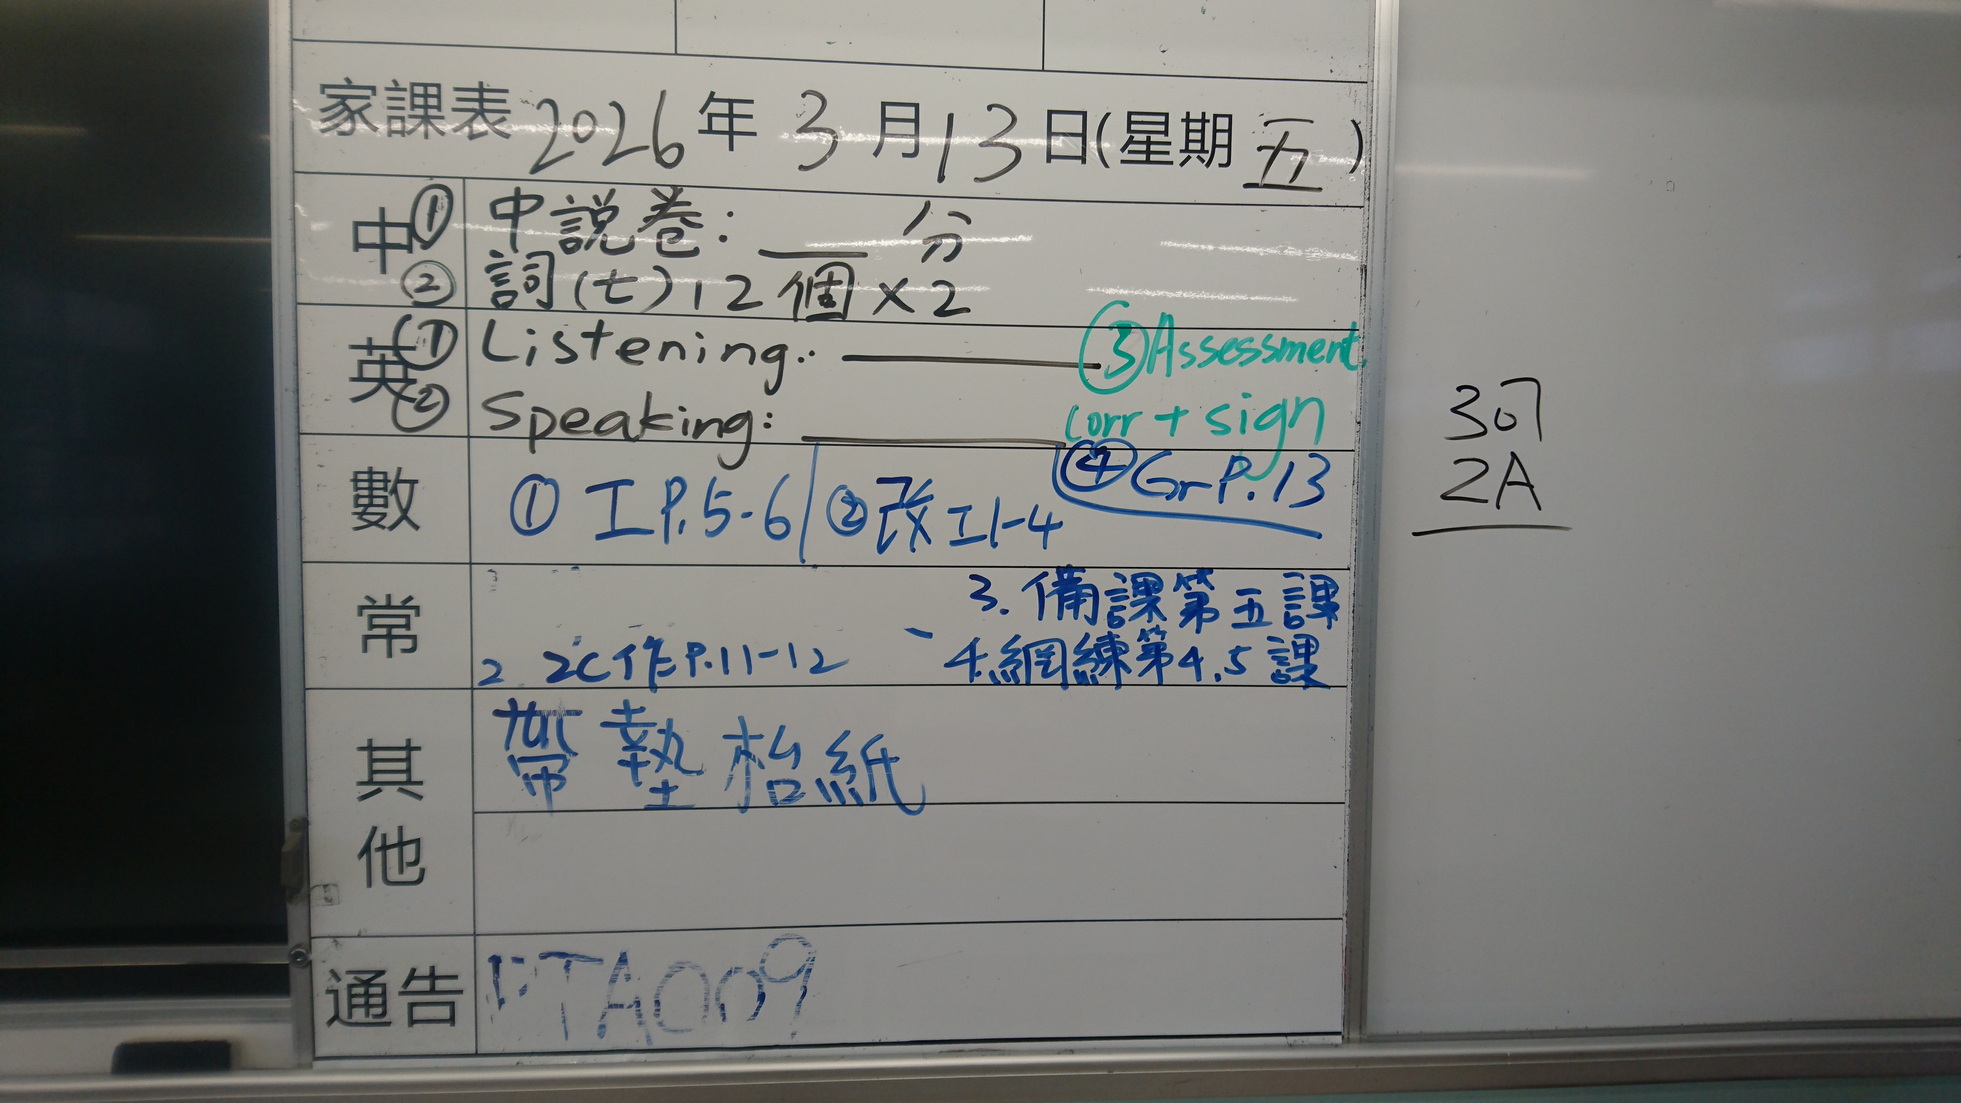 家課表 2026 年 3 月 13 日(星期 五)
中 ① 中説卷: ___ 分
② 詞(七) 12個×2
英 ① Listening: ______ ③ Assessment
② Speaking: ______ corr + sign
④ Gr P.13
數 ① 工 P.5-6 ② 改工1-4
常 3. 備課第五課
2 2C作P.11-12 4.網練第4.5課
其他 帶墊枱紙
通告 PTA009
30
2A